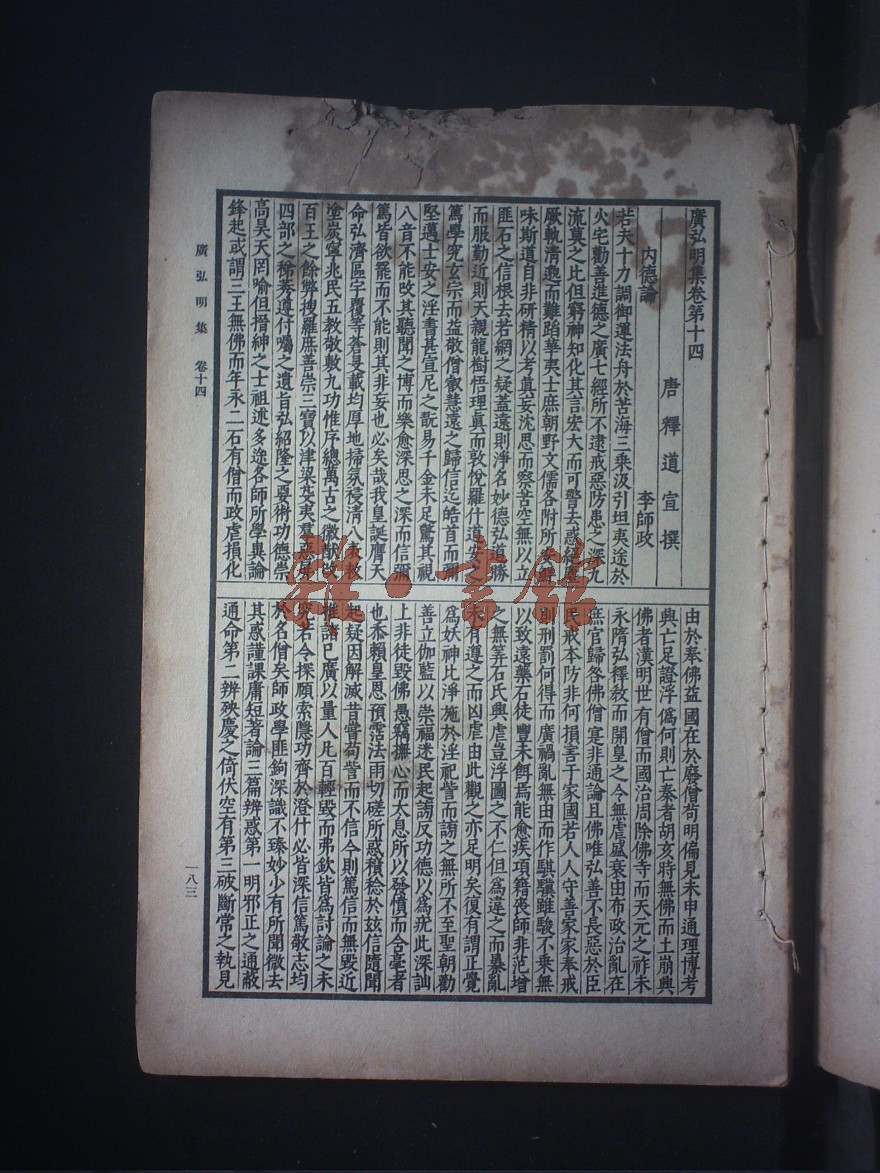 廣弘明集卷第十四
唐釋道宣撰
內德論 李師政
若夫十力調御運法舟於苦海三乘汲引坦夷途於
火宅勸善進德之廣七經所不逮戒惡防患之深九
流莫之比但窮神知化其言宏大而可警去惑絕塵
厥軌清邈而難跆華夷士庶朝野文儒各附所
味斯道自非研精以考真妄沈思而察苦空無以立
匪石之信根去若網之疑蓋遠則淨名妙德弘道勝
而服勤近則天親龍樹悟理真而敦悅羅什道安之
篤學究玄宗而益敬僧叡慧遠之歸信迄皓首而彌
堅邁士安之淫書甚宣尼之翫易千金未足驚其視
八音不能改其聽聞之博而樂愈深思之深而信彌
篤皆欲罷而不能則其非妄也必矣哉我皇誕膺天
命弘濟區宇覆等蒼旻載均厚地掃氛祲清八表救
塗炭寧兆民五教敬敷九功惟序總萬古之徽猷改
百王之餘弊搜羅庶善崇三寶以津梁芟夷羣惡屏
四部之稊莠遵付囑之遺旨弘紹隆之要術功德崇
高昊天罔喻但搢紳之士祖述多途各師所學異論
鋒起或謂三王無佛而年永二石有僧而政虐損化
由於奉佛益國在於廢僧苟明偏見未申通理博考
興亡足證浮偽何則亡秦者胡亥時無佛而土崩興
佛者漢明世有僧而國治周除佛寺而天元之祚未
永隋弘釋教而開皇之令無虐盛衰由布政治亂在
庶官歸咎佛僧寔非通論且佛唯弘善不長惡於臣
民戒本防非何損善于家國若人人守善家家奉戒
則刑罰何得而廣禍亂無由而作騏驥雖駿不乘無
以致遠藥石徒豐未餌焉能愈疾項籍喪師非范增
之無筭石氏興虐豈浮圖之不仁但為違之而暴亂
未有遵之而凶虐由此觀之亦足明矣復有謂正覺
為妖神比淨施於淫祀訾而謗之無所不至聖朝勸
善立伽藍以崇福迷民起謗反功德以為疣此深訕
上非徒毀佛愚竊撫心而太息所以發憤而含毫者
也忝賴皇恩預霑法雨切磋所惑積稔於茲信隨聞
起疑因解滅昔嘗苟訾而不信今則篤信而無毀近
推諸己廣以量人凡百輕毀而弗欽皆為討論之未
究若令探賾索隱功齊於澄什必皆深信篤敬志均
於名僧矣師政學匪鉤深識不臻妙少有所聞微去
其惑謹課庸短著論三篇辨惑第一明邪正之通蔽
通命第二辨殃慶之倚伏空有第三破斷常之執見
廣弘明集 卷十四
一八三
雜·書館